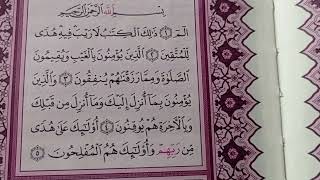 بِسْمِ اللَّهِ الرَّحْمَٰنِ الرَّحِيمِ
الٓمٓ ١ ذَٰلِكَ الْكِتَٰبُ لَا رَيْبَ فِيهِ هُدًى
لِّلْمُتَّقِينَ ٢ الَّذِينَ يُؤْمِنُونَ بِالْغَيْبِ وَيُقِيمُونَ
الصَّلَوٰةَ وَمِمَّا رَزَقْنَٰهُمْ يُنفِقُونَ ٣ وَالَّذِينَ
يُؤْمِنُونَ بِمَا أُنزِلَ إِلَيْكَ وَمَا أُنزِلَ مِن قَبْلِكَ
وَبِالْآخِرَةِ هُمْ يُوقِنُونَ ٤ أُولَٰئِكَ عَلَىٰ هُدًى
مِّن رَّبِّهِمْ وَأُولَٰئِكَ هُمُ الْمُفْلِحُونَ ٥